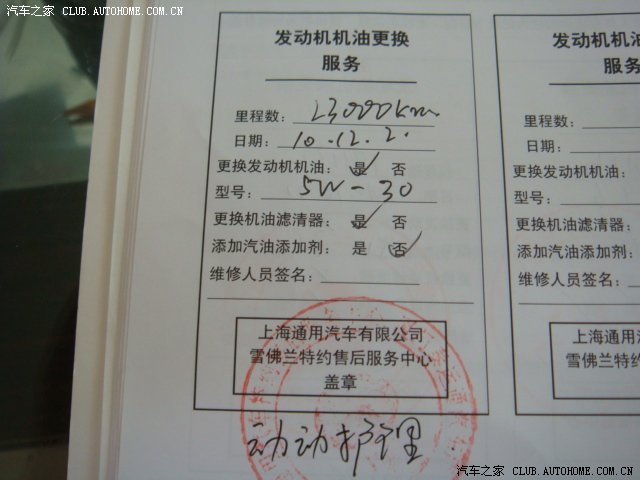 汽车之家 CLUB.AUTOHOME.COM.CN
发动机机油更换
服务
里程数：23000Km
日期：10.12.2.
更换发动机机油：是 否
型号：5W-30
更换机油滤清器：是 否
添加汽油添加剂：是 否
维修人员签名：
上海通用汽车有限公司
雪佛兰特约售后服务中心
盖章
动动护理
发动机机油
服务
里程数：
日期：
更换发动机机油：
型号：
更换机油滤清器：
添加汽油添加剂：
维修人员签名：
上海通用
雪佛兰特约
汽车之家 CLUB.AUTOHOME.COM.CN